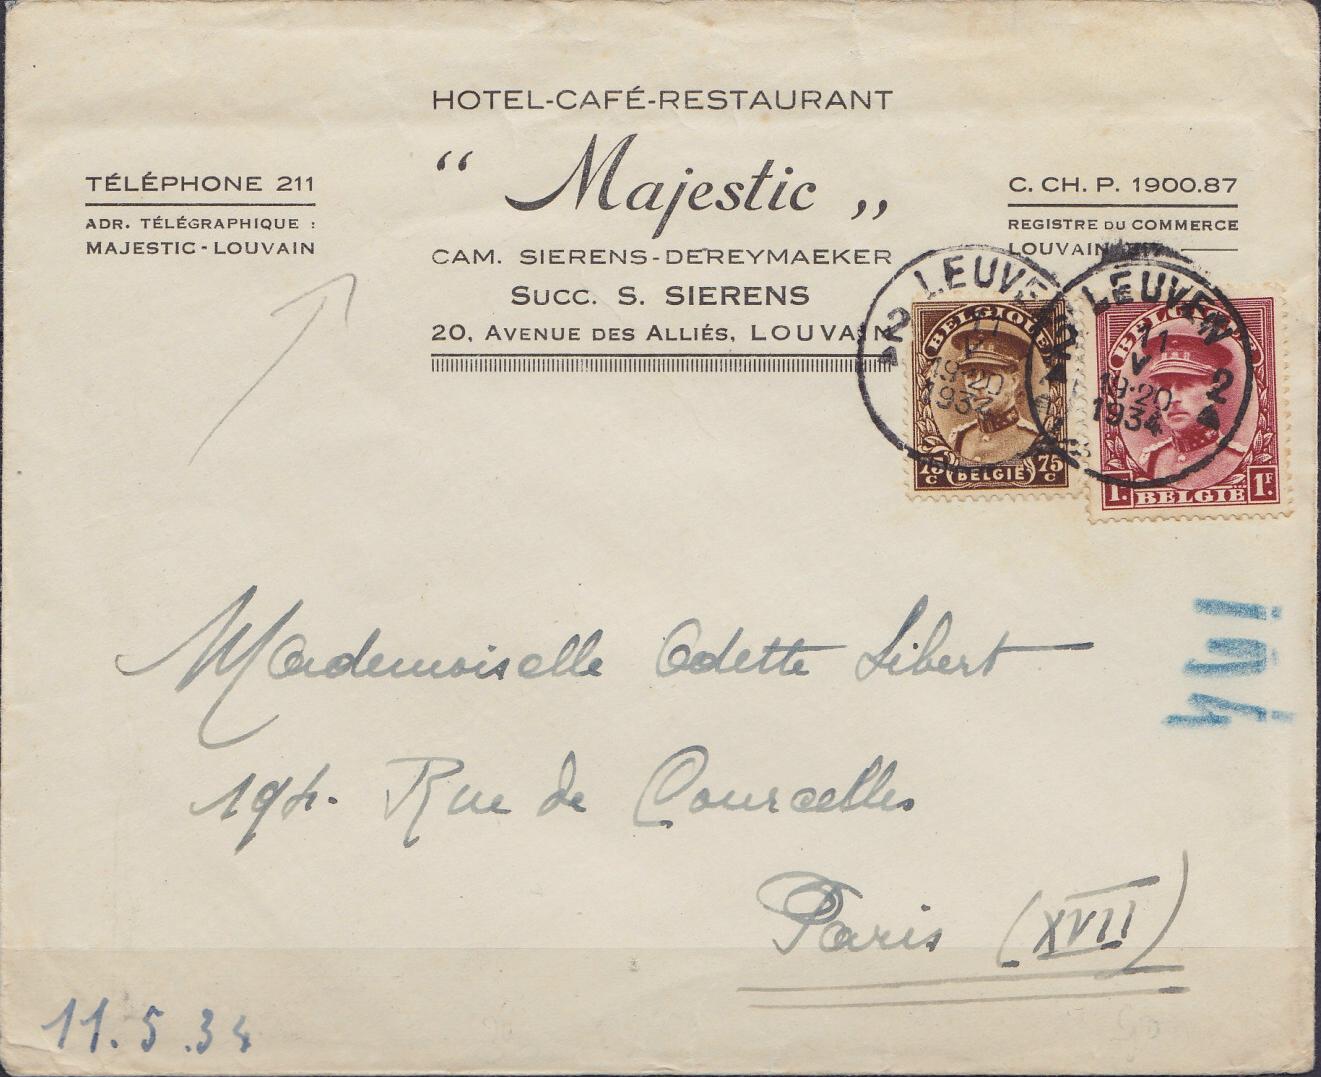 HOTEL-CAFÉ-RESTAURANT
“ Majestic „
CAM. SIERENS-DEREYMAEKER
SUCC. S. SIERENS
20, AVENUE DES ALLIÉS, LOUVAIN
TÉLÉPHONE 211
ADR. TÉLÉGRAPHIQUE :
MAJESTIC - LOUVAIN
C. CH. P. 1900.87
REGISTRE DU COMMERCE
LOUVAIN
2 LEUVEN
11 V
19-20
1934
BELGIQUE
75 C BELGIË 75 C
2 LEUVEN 2
11 V
19-20
1934
BELGIQUE
1F. BELGIË 1F.
Mademoiselle Odette Libert
194. Rue de Courcelles
Paris (XVII)
11.5.34